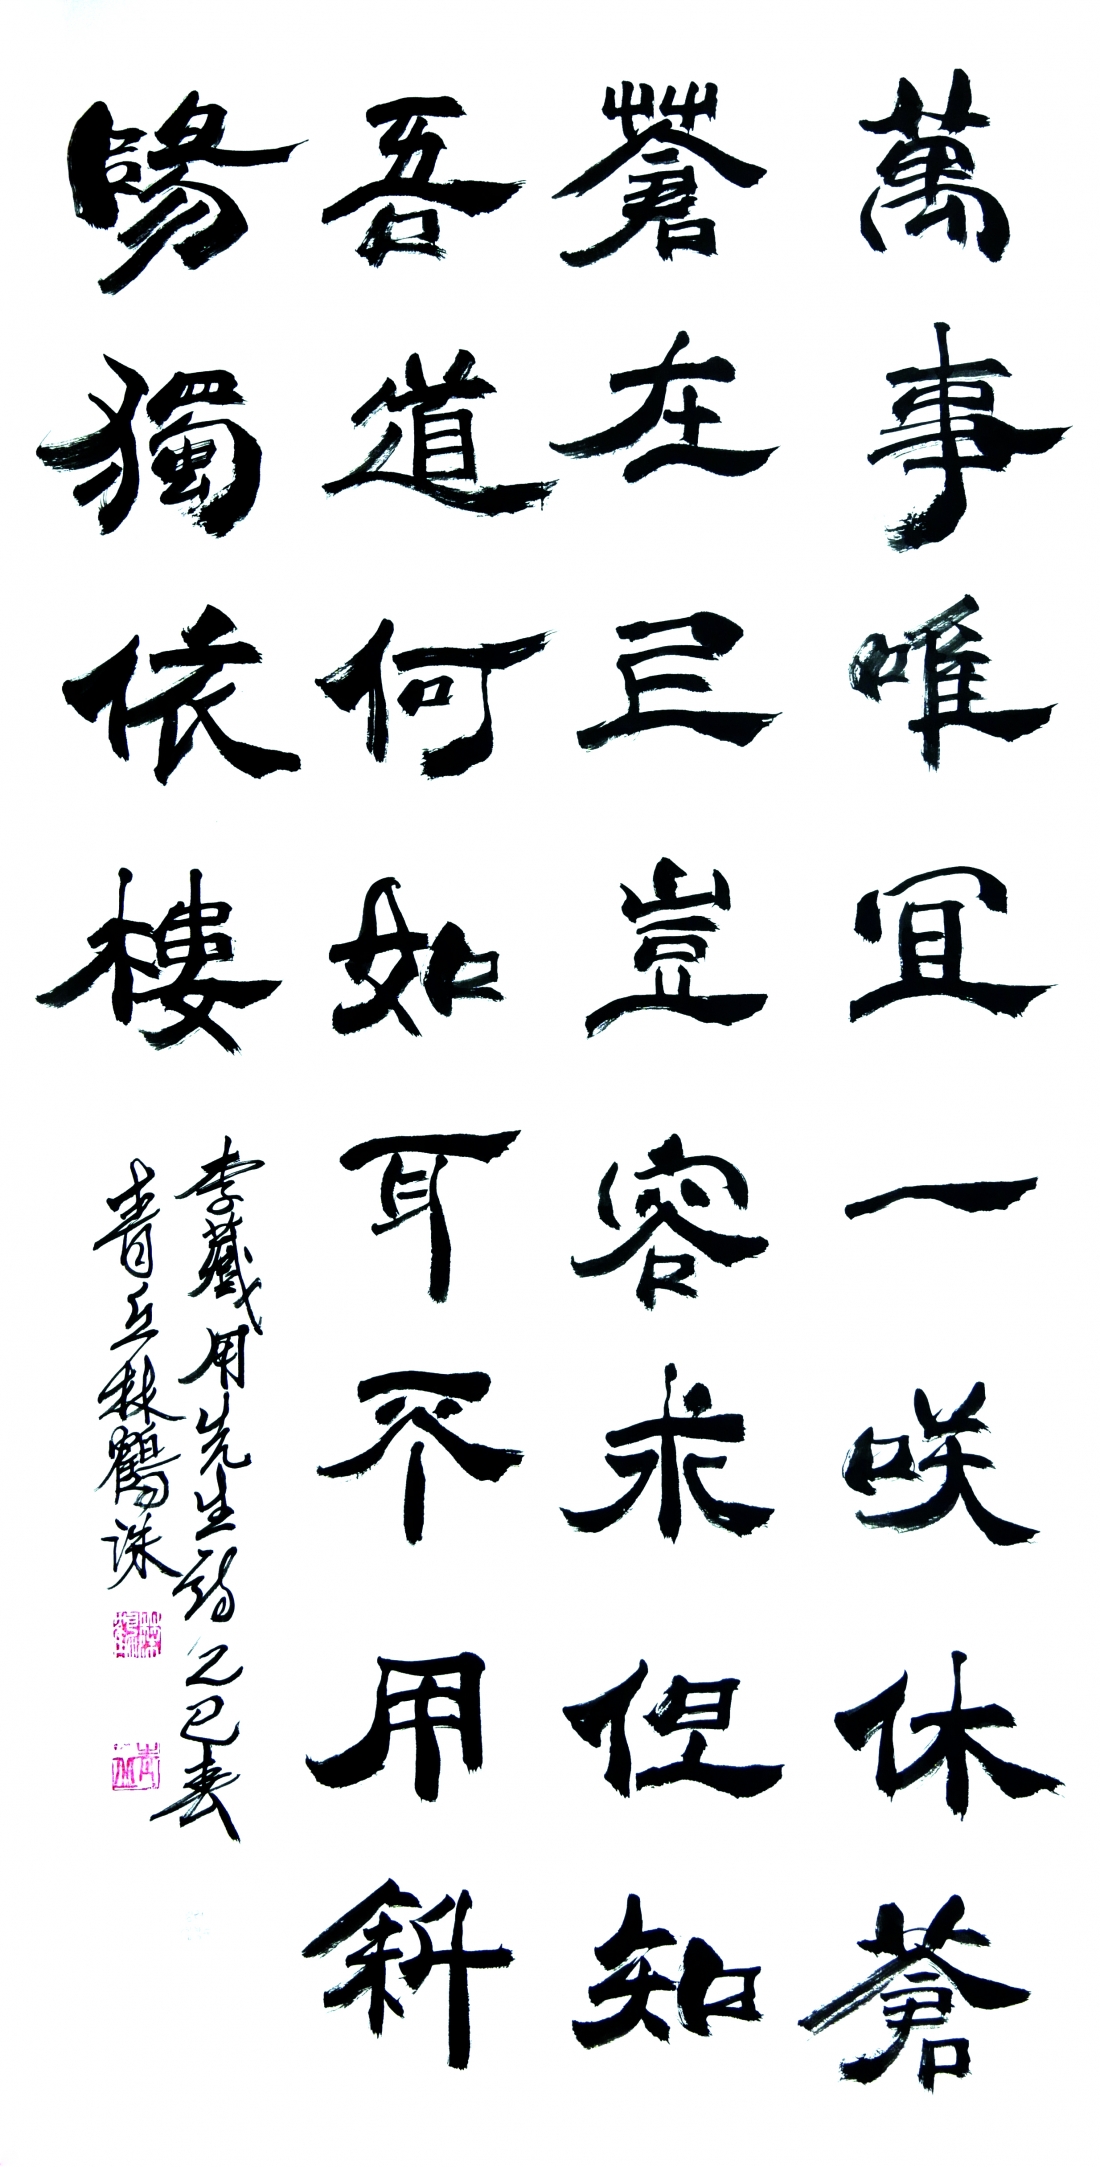 萬事唯宜一咲休蒼
蒼在上豈容求但知
吾道何如耳不用斜
陽獨依樓
李藏用先生詩乙巳春
青丘林鶴洙